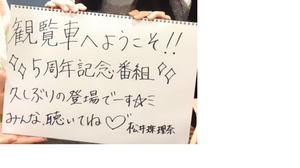 観覧車へようこそ!!
✧✧5周年記念番組✧✧
久しぶりの登場でーす☆ミ
みんな聴いてね♡
松井珠理奈